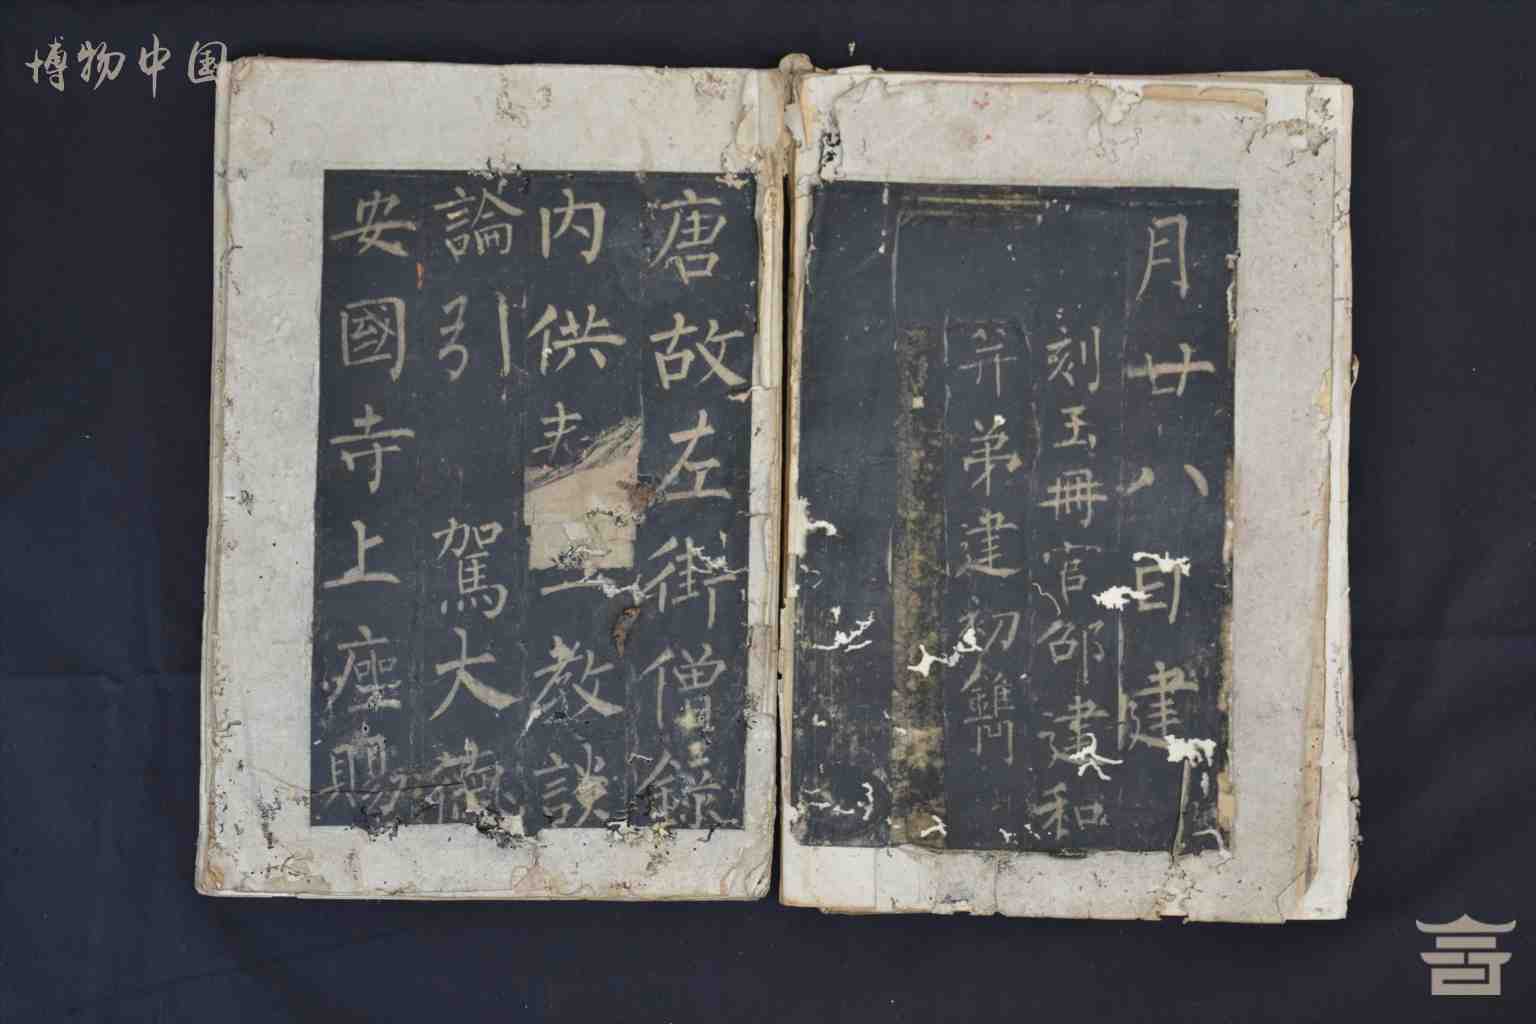 博物中国
月廿八日建
刻玉冊官邵建和
并弟建初鐫
唐故左街僧錄
內供三教談
論引駕大德
安國寺上座賜